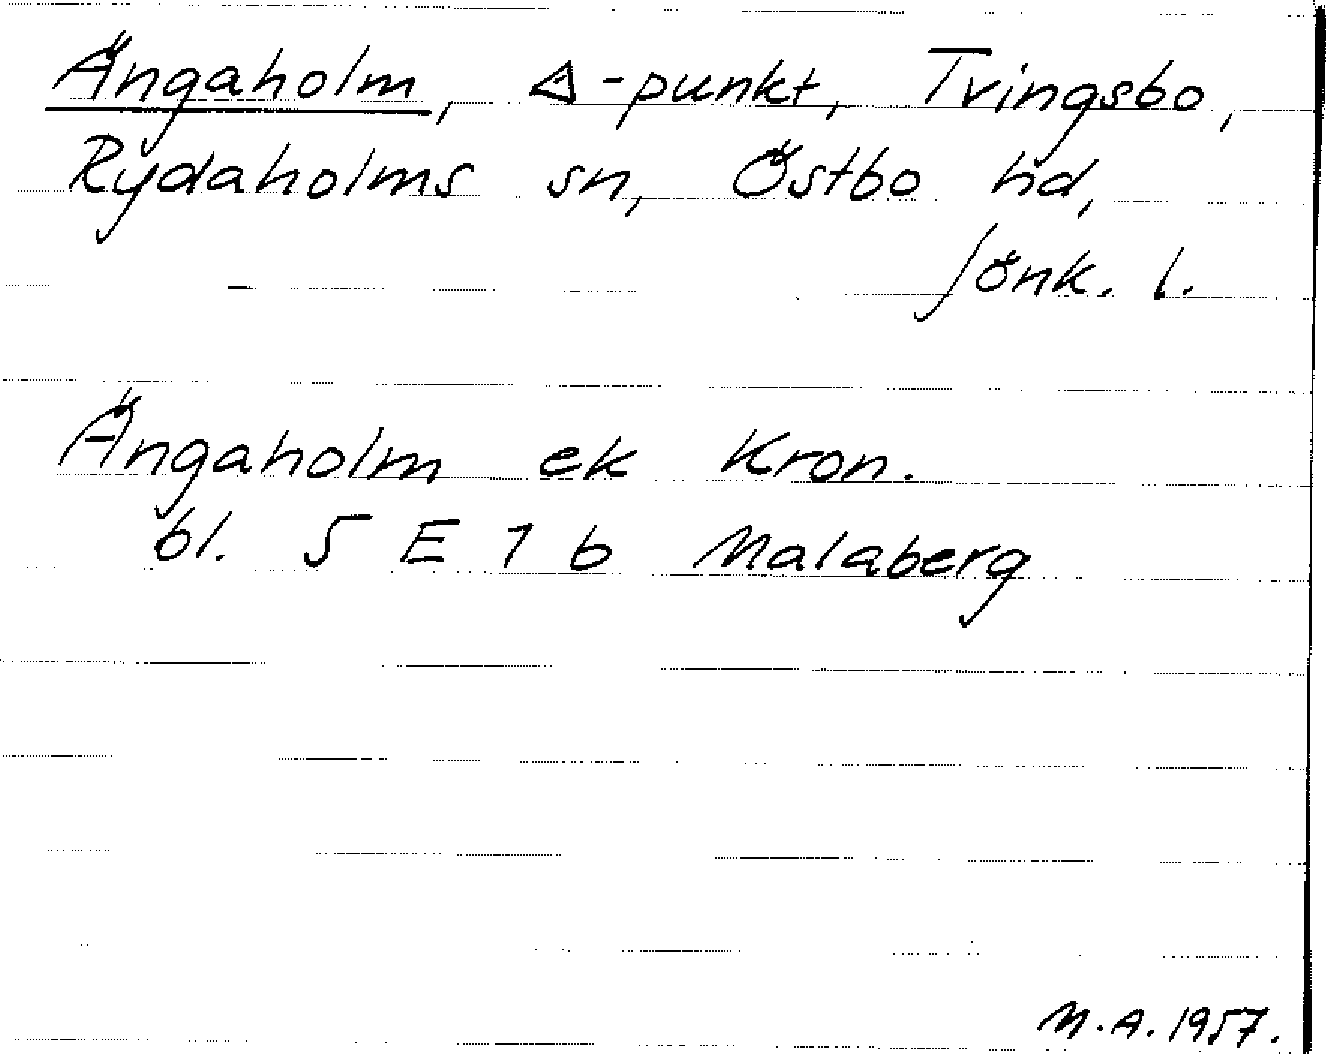 Ängaholm, △-punkt, Tvingsbo,
Rydaholms sn, Östbo hd,
Jönk. l.
Ängaholm ek Kron.
bl. 5 E 1 b Malaberg
M.A. 1957.